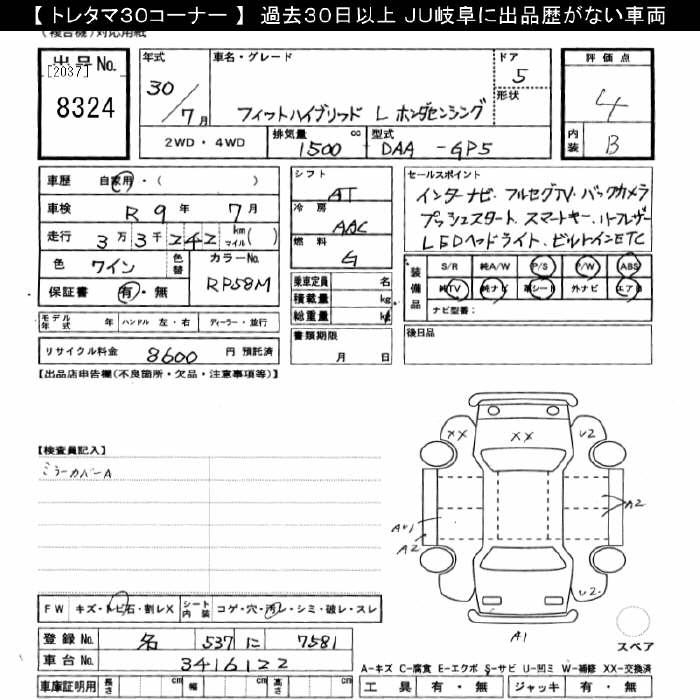 【 トレタマ30コーナー 】 過去30日以上 JU岐阜に出品歴がない車両
(複合機)対応用紙
出品No.
[2037]
8324
年式
30/7月
車名・グレード
フィットハイブリッド L ホンダセンシング
ドア
5
形状
評価点
4
内装
B
2WD・4WD
排気量
1500
cc
型式
DAA -GP5
車歴 自家用・( )
車検 R 9 年 7 月
走行 3万3千242 km マイル( )
色 ワイン 色替 カラーNo. RP58M
保証書 有・無
モデル年式 年 ハンドル 左・右 ディーラー・並行
リサイクル料金 8600 円 預託済
シフト
AT
冷房
AAC
燃料
G
乗車定員 名
積載量 kg
総重量 kg
書類期限
月 日
セールスポイント
インターナビ・フルセグTV・バックカメラ
プッシュスタート、スマートキー、ハーフレザー
LEDヘッドライト・ビルトインETC
装備品
S/R 純A/W P/S P/W ABS
純TV 純ナビ 革シート 外ナビ エアB
ナビ型番:
後日品
【出品店申告欄(不良箇所・欠品・注意事項等)】
【検査員記入】
ミラーカバーA
XX XX U2
A2
AU1
A2
U2
A1
スペア
FW キズ・トビ石・割レX シート内装 コゲ・穴・汚レ・シミ・破レ・スレ
登録No. 名 537 に 7581
車台No. 3416122
A-キズ C-腐食 E-エクボ S-サビ U-凹ミ W-補修 XX-交換済
車庫証明用 長さ cm 幅 cm 高さ cm
工具 有・無 ジャッキ 有・無